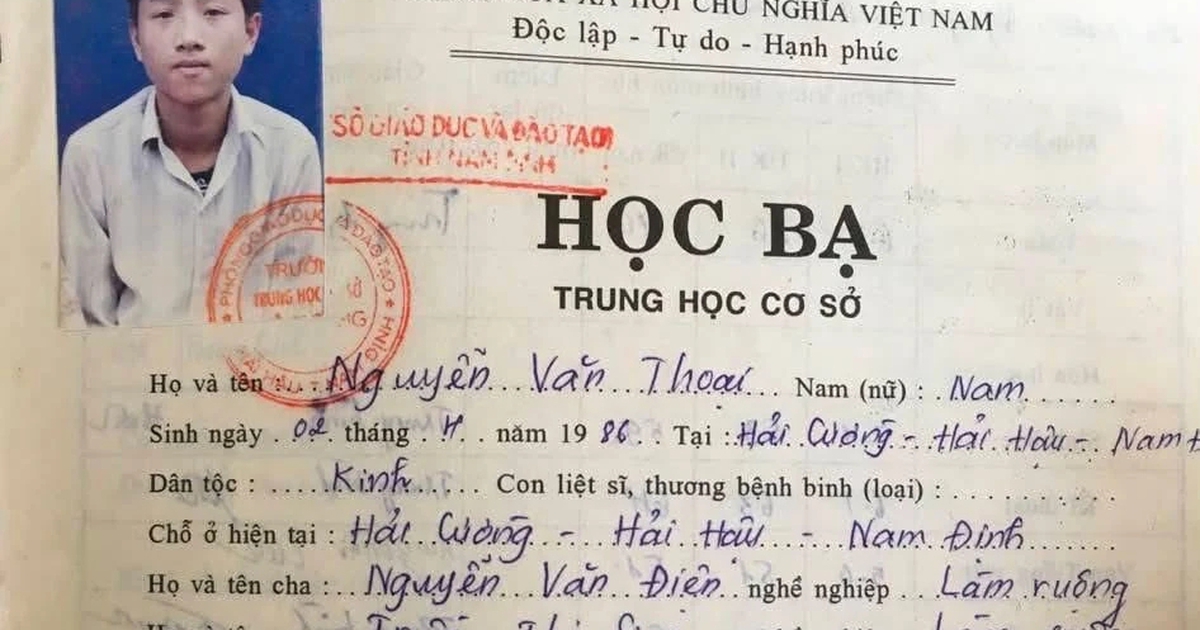 XÃ HỘI CHỦ NGHĨA VIỆT NAM
Độc lập - Tự do - Hạnh phúc
SỞ GIÁO DỤC VÀ ĐÀO TẠO
TỈNH NAM
HỌC BẠ
TRUNG HỌC CƠ SỞ
PHÒNG GIÁO DỤC VÀ ĐÀO TẠO
TRƯỜNG
TRUNG HỌC CƠ SỞ
Họ và tên : Nguyễn Văn Thoại Nam (nữ) : Nam
Sinh ngày 02 tháng 4 năm 19 86 Tại : Hải Cường - Hải Hậu - Nam Đ
Dân tộc : Kinh Con liệt sĩ, thương bệnh binh (loại) :
Chỗ ở hiện tại : Hải Cường - Hải Hậu - Nam Định
Họ và tên cha : Nguyễn Văn Điền nghề nghiệp Làm ruộng